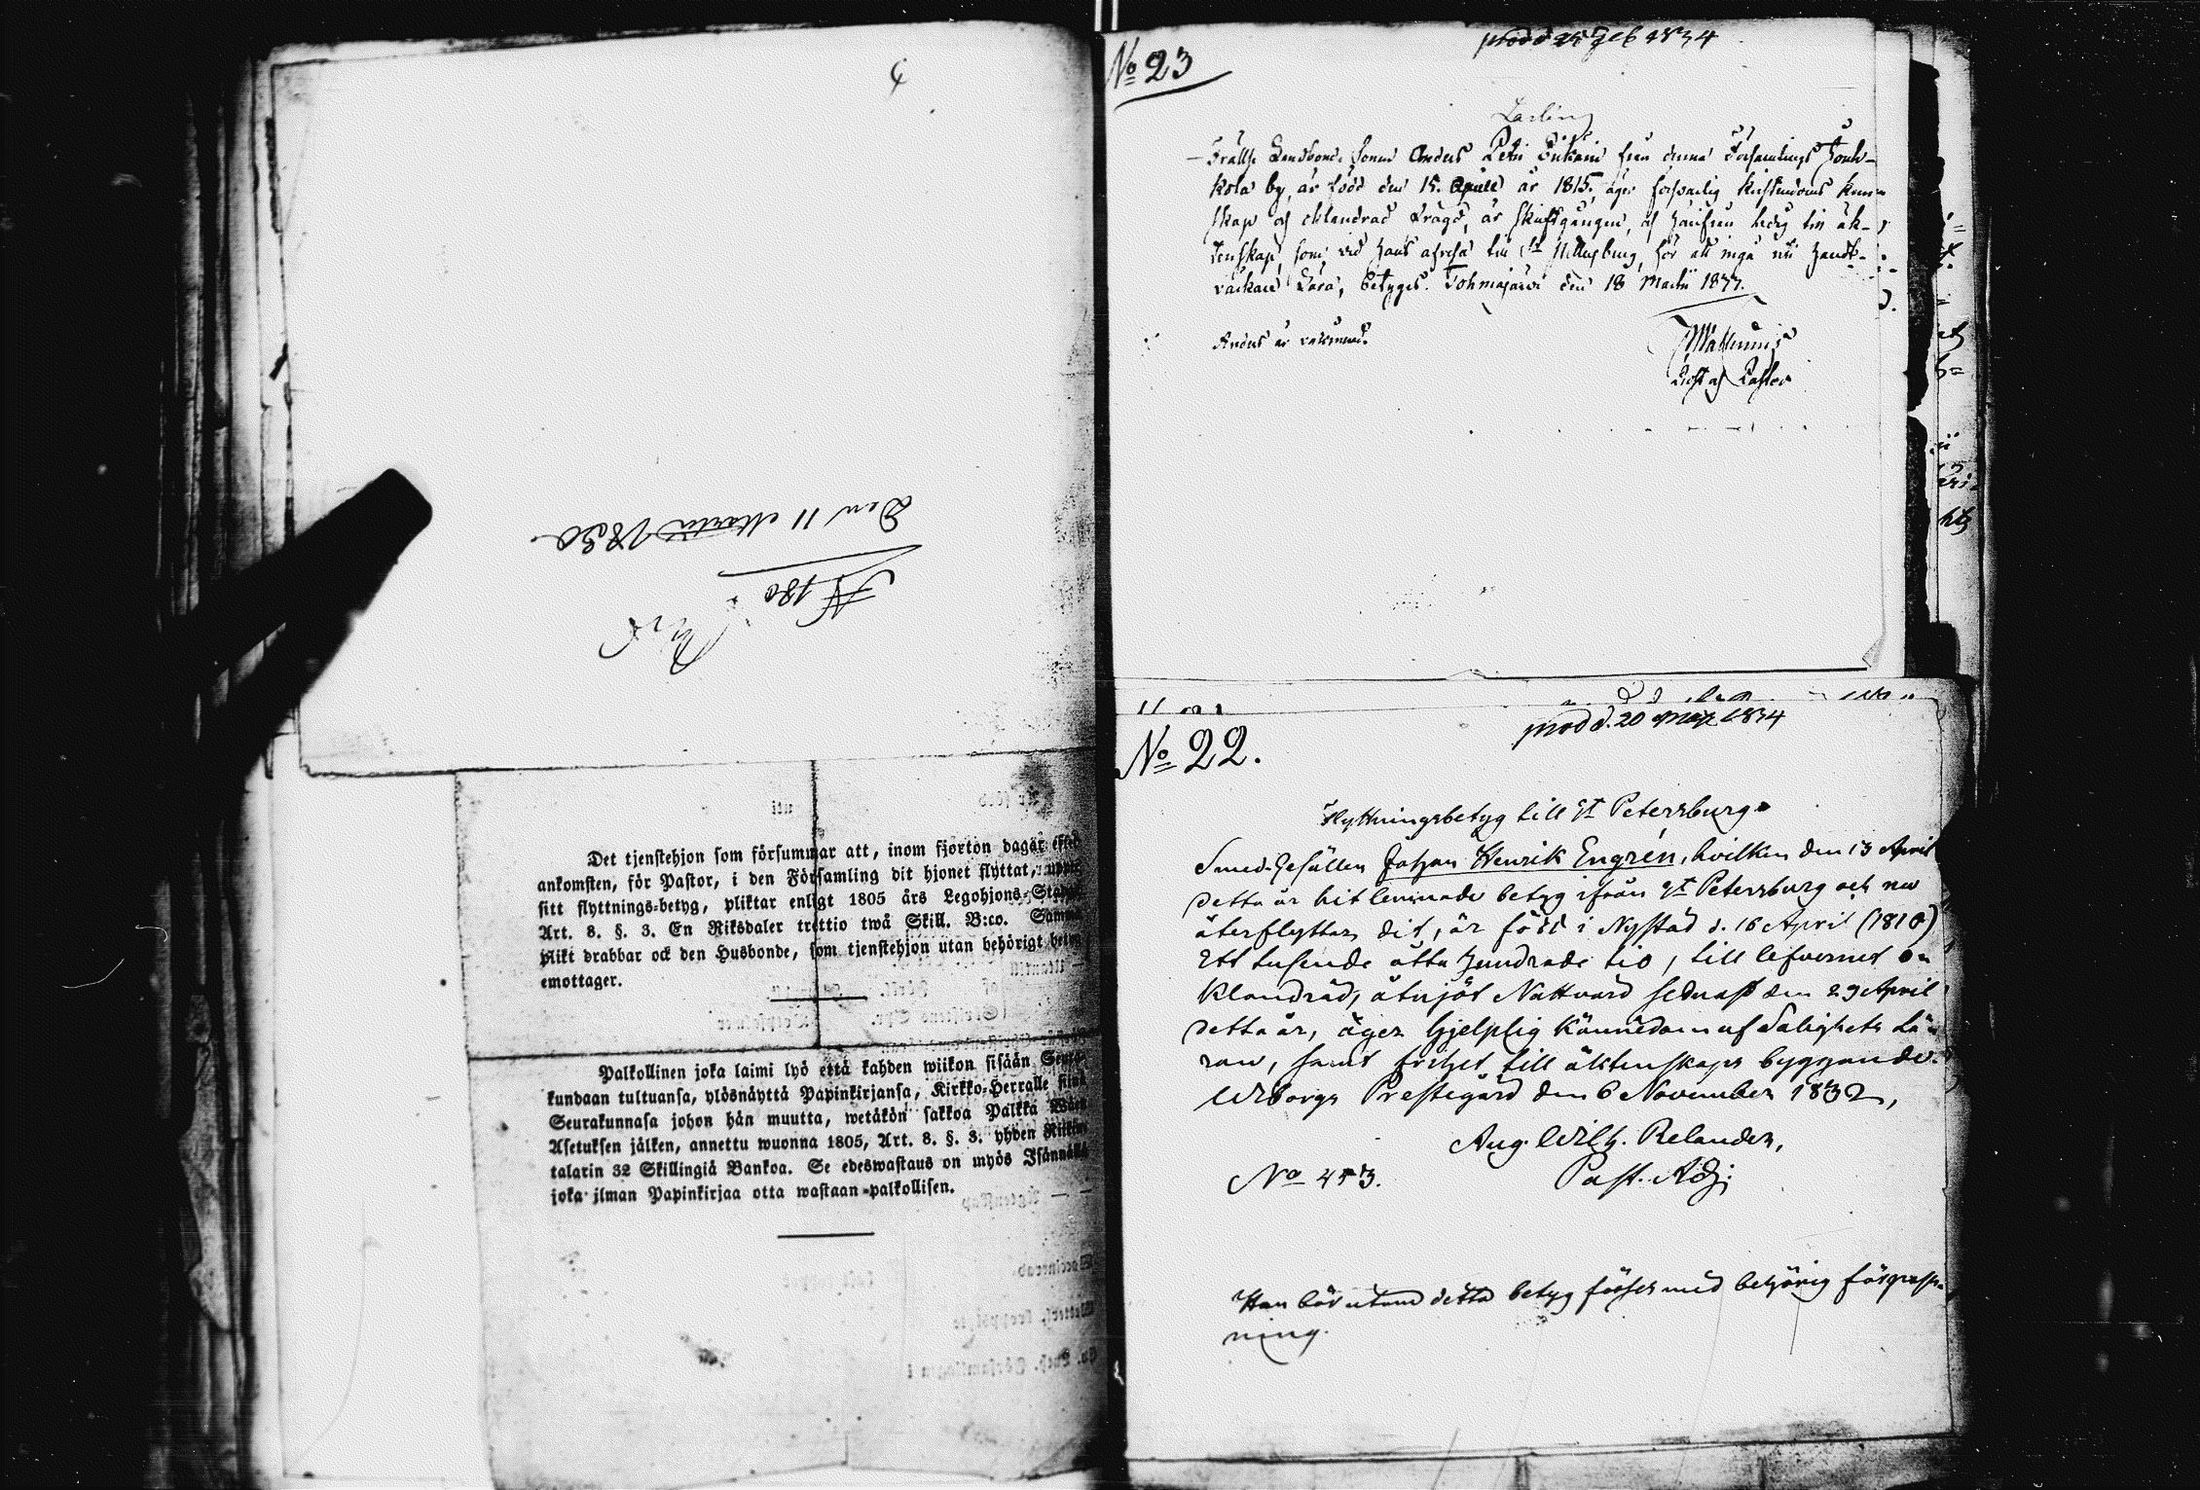 Den 11 Martii 1830.
N 180
Det tjenstehjon som försummar att, inom fjorton dagar efter
ankomsten, för Pastor, i den Församling dit hjonet flyttat, uppte
sitt flyttnings-betyg, pliktar enligt 1805 års Legohjons-Stadga
Art. 8. §. 3. En Riksdaler trettio twå Skill. B:co. Samma
plikt drabbar ock den Husbonde, som tjenstehjon utan behörigt betyg
emottager.
Palkollinen joka laimi lyö että kahden wiikon sisään Seura-
kundaan tultuansa, ylösnäyttä Papinkirjansa, Kirkko-Herralle siinä
Seurakunnasa johon hän muutta, wetäkön sakkoa Palkka Wäen
Asetuksen jälken, annettu wuonna 1805, Art. 8. §. 3. yhden Riksin
talarin 32 Skillingiä Bankoa. Se edeswastaus on myös Isännällä
joka ilman Papinkirjaa otta wastaan palkollisen.
No 23
prod d 25 Feb 1834
Lärling
Frälse Landbonde Sonen Anders Petri Pukain från denna Församlings Jouh-
kola by, är född den 15. Aprill år 1815, äger försvarlig kristendoms kun-
skap och oklandrad frägd, är skriftgången, och härifrån ledig till äk-
tenskap, som, vid hans afresa till St Petersburg, för att ingå uti handt-
värkare Lära, betygas. Tohmajärvi den 18 Martii 1833.
Anders är vaccinerad.
Prost och Pastor
No 22.
prod d. 20 Maj 1834
Flyttningsbetyg till St Petersburg.
Smed-Gesällen Johan Henrik Engrén, hvilken den 13 April
detta år hit lemnade betyg ifrån St Petersburg och nu
återflyttar dit, är född i Nystad d. 16 April (1810)
Ett tusende åtta hundrade tio, till lefvernet o-
klandrad, åtnjöt Nattvard sednast den 29 April
detta år, äger hjelplig kännedom af Salighets Lä-
ran, samt frihet till äktenskaps byggande.
Wiborgs Prestegård den 6 November 1832,
Aug. Wilh. Relander,
No 453.
Past. Adj.
Han bör utom detta betyg förses med behörig förpass-
ning.